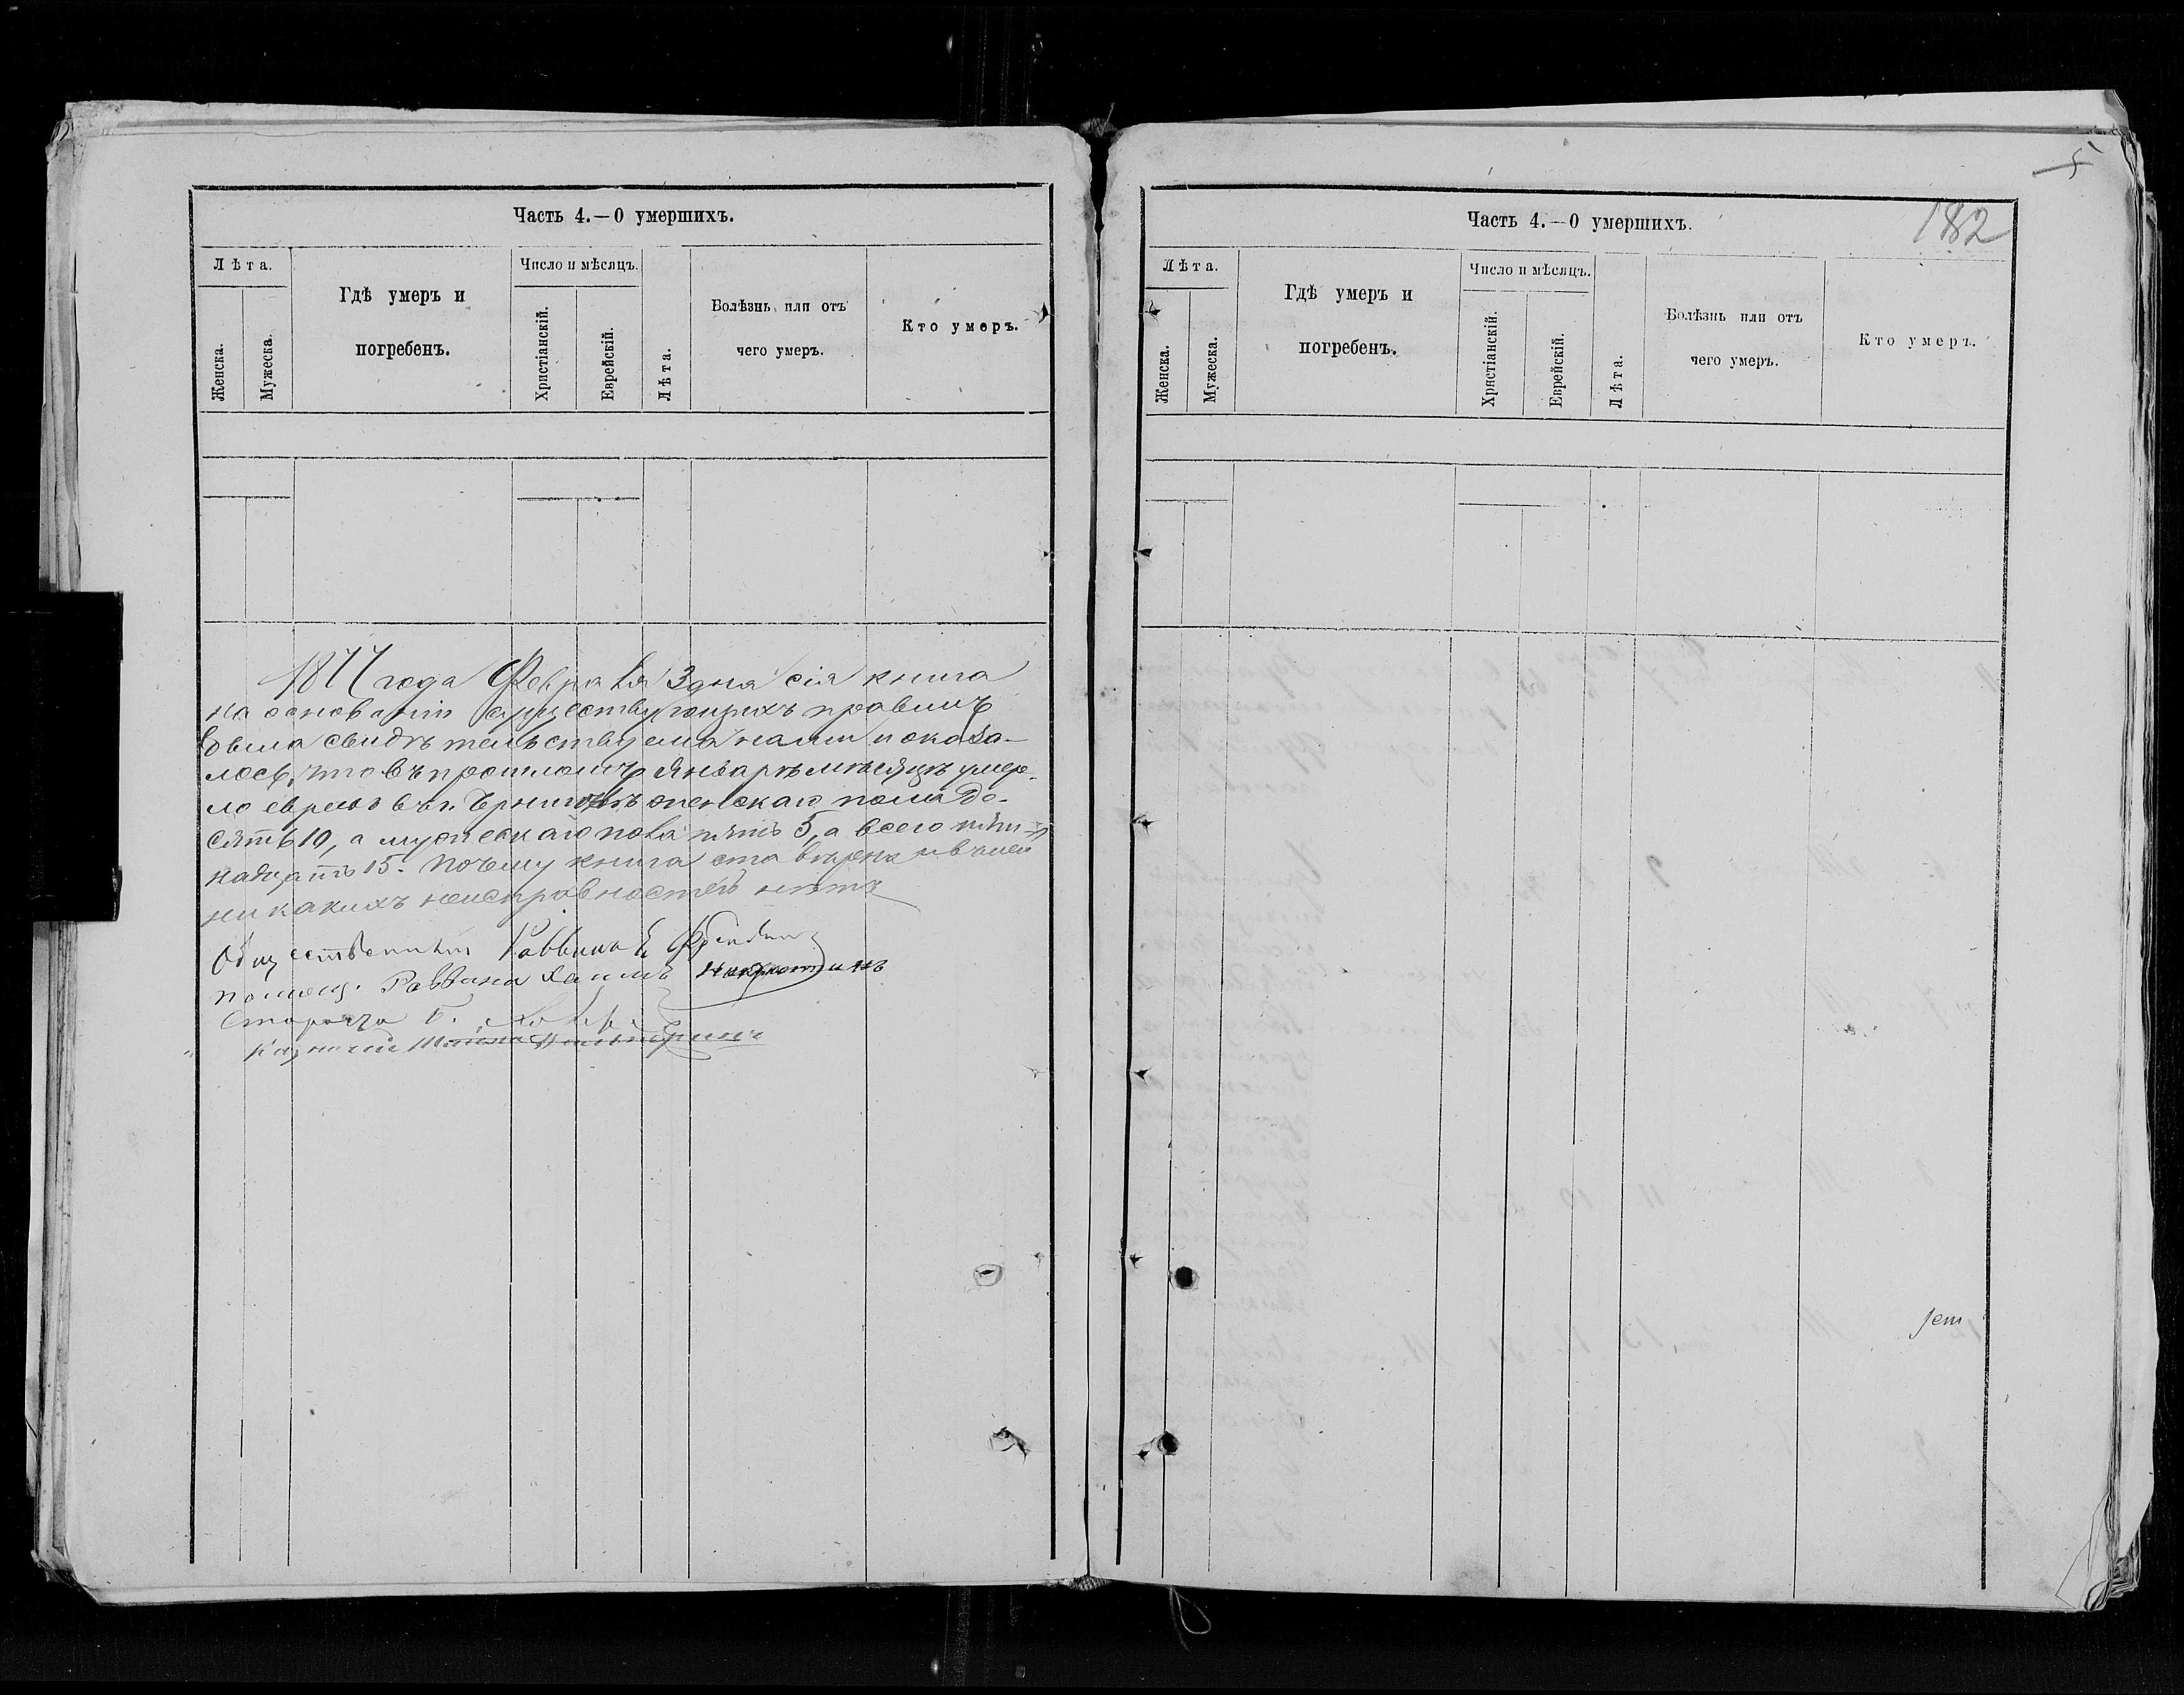 Часть 4.—О умершихъ.
Лѣта.
Женска.
Мужеска.
Гдѣ умеръ и
погребенъ.
Число и мѣсяцъ.
Христіанскій.
Еврейскій.
Лѣта.
Болѣзнь или отъ
чего умеръ.
Кто умеръ.
1877 года Февраля 3 дня сія книга
на основаніи существующихъ правилъ
была свидѣтельствуема нами и оказа-
лось, что въ прошломъ Январѣ мѣсяцѣ умер-
ло евреевъ въ г. Черниговѣ женскаго пола де-
сять 10, а мужескаго пола пять 5, а всего пят-
надцать 15. Почему книга эта вѣрна и въ ней
никакихъ неисправностей нѣтъ
Общественный Раввинъ
Помощ. Раввина Хаимъ
Староста Б.
Казначей
5
182
Часть 4.—О умершихъ.
Лѣта.
Женска.
Мужеска.
Гдѣ умеръ и
погребенъ.
Число и мѣсяцъ.
Христіанскій.
Еврейскій.
Лѣта.
Болѣзнь или отъ
чего умеръ.
Кто умеръ.